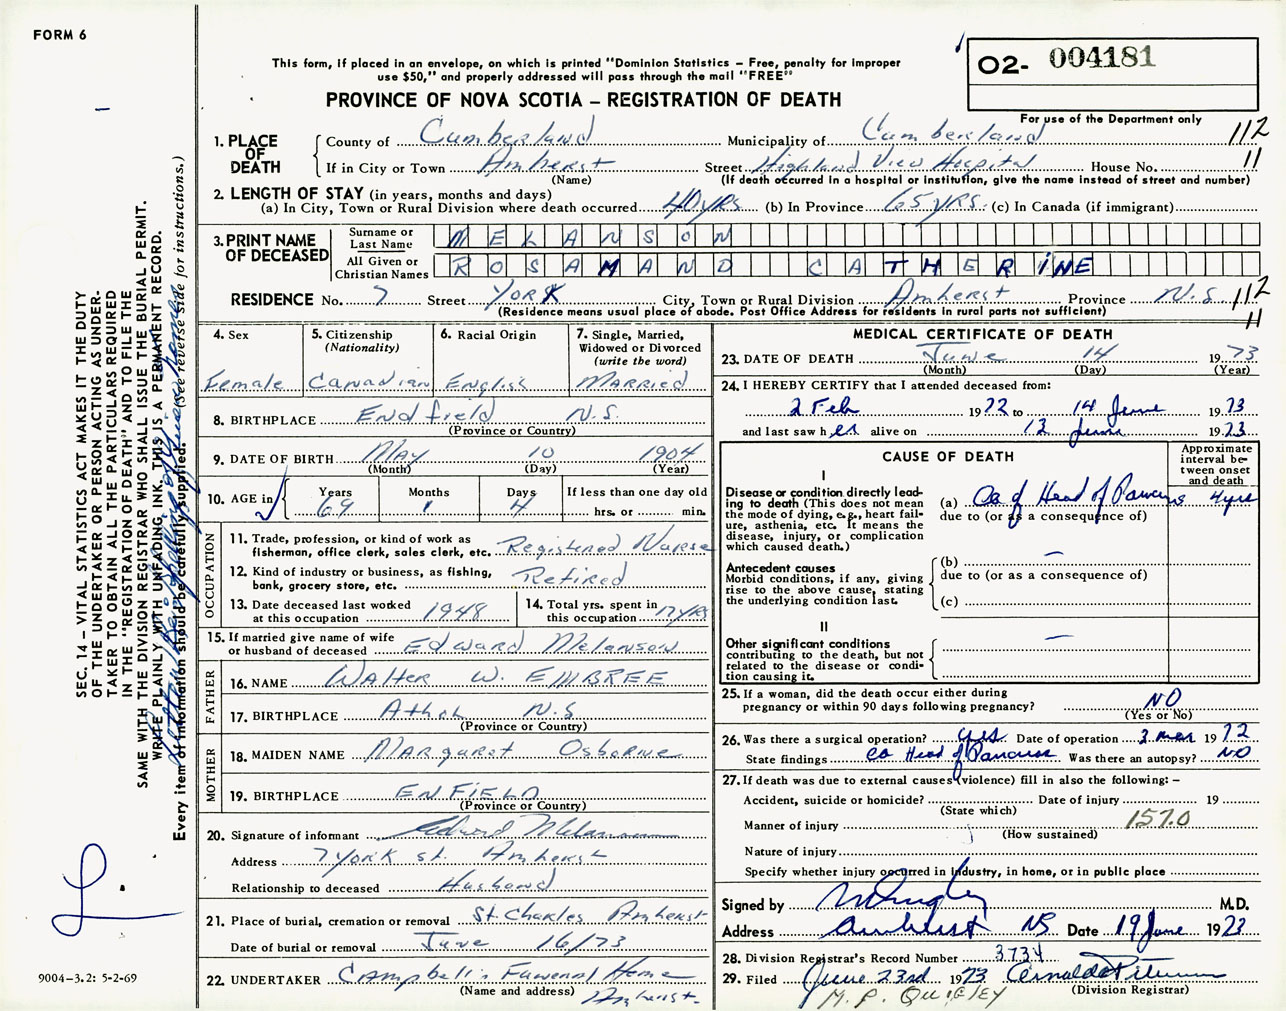 FORM 6
O2- 004181
This form, if placed in an envelope, on which is printed "Dominion Statistics – Free, penalty for improper
use $50," and properly addressed will pass through the mail "FREE"
PROVINCE OF NOVA SCOTIA – REGISTRATION OF DEATH
For use of the Department only
1. PLACE OF DEATH { County of Cumberland Municipality of Cumberland 112
If in City or Town Amherst Street Highland View Hospital House No. 11
(Name) (If death occurred in a hospital or institution, give the name instead of street and number)
2. LENGTH OF STAY (in years, months and days)
(a) In City, Town or Rural Division where death occurred 40 yrs (b) In Province 65 yrs. (c) In Canada (if immigrant)
3. PRINT NAME OF DECEASED
Surname or Last Name MELANSON
All Given or Christian Names ROSAMAND CATHERINE
RESIDENCE No. 7 Street York City, Town or Rural Division Amherst Province N.S. 112
(Residence means usual place of abode. Post Office Address for residents in rural parts not sufficient) 11
4. Sex Female
5. Citizenship (Nationality) Canadian
6. Racial Origin English
7. Single, Married, Widowed or Divorced (write the word) Married
8. BIRTHPLACE Endfield N.S.
(Province or Country)
9. DATE OF BIRTH May 10 1904
(Month) (Day) (Year)
10. AGE in { Years 69 Months 1 Days 4 If less than one day old
hrs. or min.
OCCUPATION
11. Trade, profession, or kind of work as
fisherman, office clerk, sales clerk, etc. Registered Nurse
12. Kind of industry or business, as fishing,
bank, grocery store, etc. Retired
13. Date deceased last worked
at this occupation 1948
14. Total yrs. spent in
this occupation 17 yrs
15. If married give name of wife
or husband of deceased Edward Melanson
FATHER
16. NAME Walter W. EMBREE
17. BIRTHPLACE Athol N.S.
(Province or Country)
MOTHER
18. MAIDEN NAME Margaret Osborne
19. BIRTHPLACE ENFIELD
(Province or Country)
20. Signature of informant Edward Melanson
Address 7 York St. Amherst
Relationship to deceased Husband
21. Place of burial, cremation or removal St. Charles Amherst
Date of burial or removal June 16/73
22. UNDERTAKER Campbell's Funeral Home
(Name and address) Amherst.
MEDICAL CERTIFICATE OF DEATH
23. DATE OF DEATH June 14 1973
(Month) (Day) (Year)
24. I HEREBY CERTIFY that I attended deceased from:
2 Feb 1972 to 14 June 1973
and last saw her alive on 13 June 1973
CAUSE OF DEATH
Approximate interval between onset and death
I
Disease or condition directly leading to death (This does not mean the mode of dying, e.g., heart failure, asthenia, etc. It means the disease, injury, or complication which caused death.)
(a) Ca of Head of Pancreas 4 yrs
due to (or as a consequence of)
Antecedent causes
Morbid conditions, if any, giving rise to the above cause, stating the underlying condition last.
(b) –
due to (or as a consequence of)
(c)
II
Other significant conditions
contributing to the death, but not related to the disease or condition causing it. –
25. If a woman, did the death occur either during
pregnancy or within 90 days following pregnancy? NO
(Yes or No)
26. Was there a surgical operation? yes Date of operation 3 Mar 1972
State findings Ca Head of Pancreas Was there an autopsy? NO
27. If death was due to external causes (violence) fill in also the following: –
Accident, suicide or homicide? Date of injury 19
(State which)
Manner of injury 157.0
(How sustained)
Nature of injury
Specify whether injury occurred in industry, in home, or in public place
Signed by M.D.
Address Amherst NS Date 19 June 1973
28. Division Registrar's Record Number 3734
29. Filed June 23rd 1973
(Division Registrar)
M. P. QUIGLEY
SEC. 14 – VITAL STATISTICS ACT MAKES IT THE DUTY
OF THE UNDERTAKER OR PERSON ACTING AS UNDER-
TAKER TO OBTAIN ALL THE PARTICULARS REQUIRED
IN THE "REGISTRATION OF DEATH" AND TO FILE THE
SAME WITH THE DIVISION REGISTRAR WHO SHALL ISSUE THE BURIAL PERMIT.
WRITE PLAINLY WITH UNFADING INK. THIS IS A PERMANENT RECORD.
Every item of information should be carefully supplied. (See reverse side for instructions.)
9004–3.2: 5-2-69